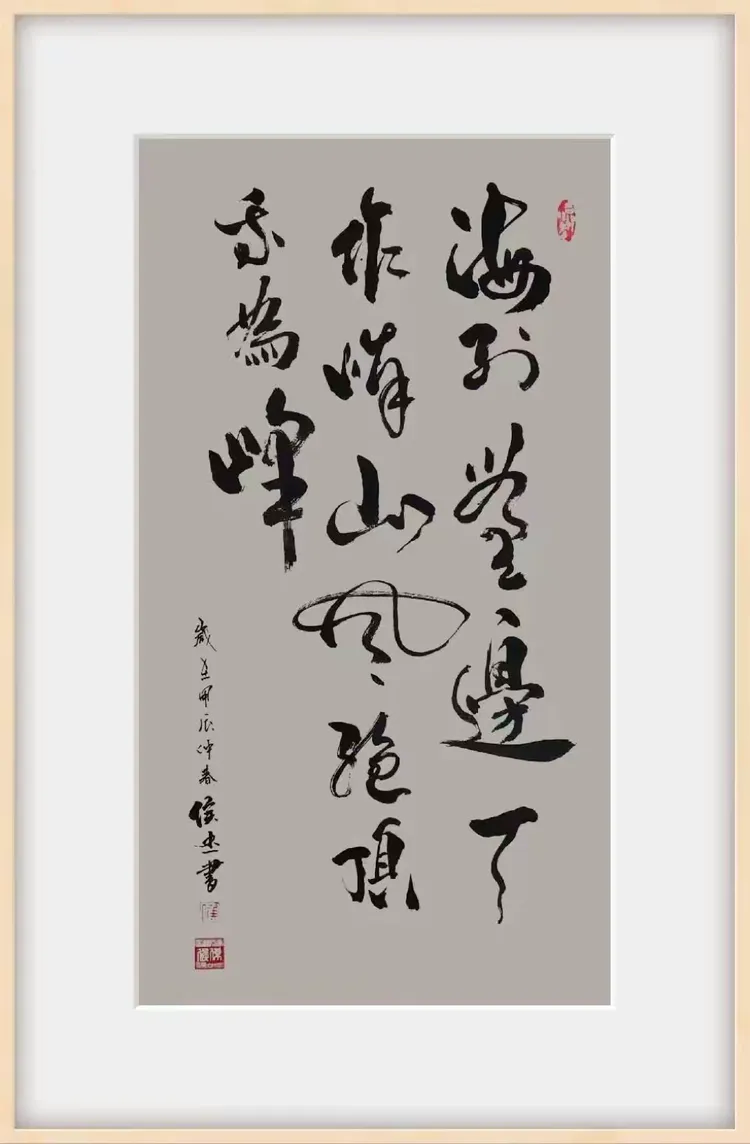 海到無邊天
作岸山登絕頂
我為峰
歲在甲辰仲春侯杰書